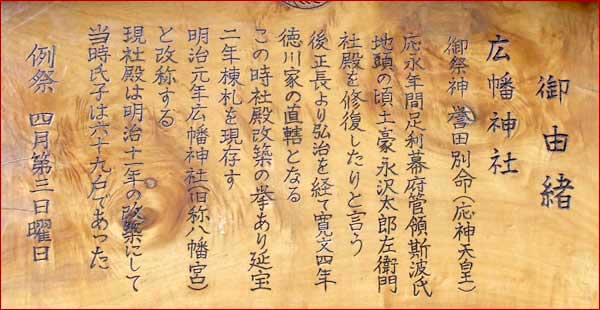 御由緒
広幡神社
御祭神 誉田別命(応神天皇)
応永年間足利幕府管領斯波氏
地頭の頃土豪永沢太郎左衛門
社殿を修復したりと言う
後正長より弘治を経て寛文四年
徳川家の直轄となる
この時社殿改築の挙あり延宝
二年棟札を現存す
明治元年広幡神社(旧称八幡宮)
と改称する
現社殿は明治十一年の改築にして
当時氏子は六十九戸であった
例祭 四月第三日曜日